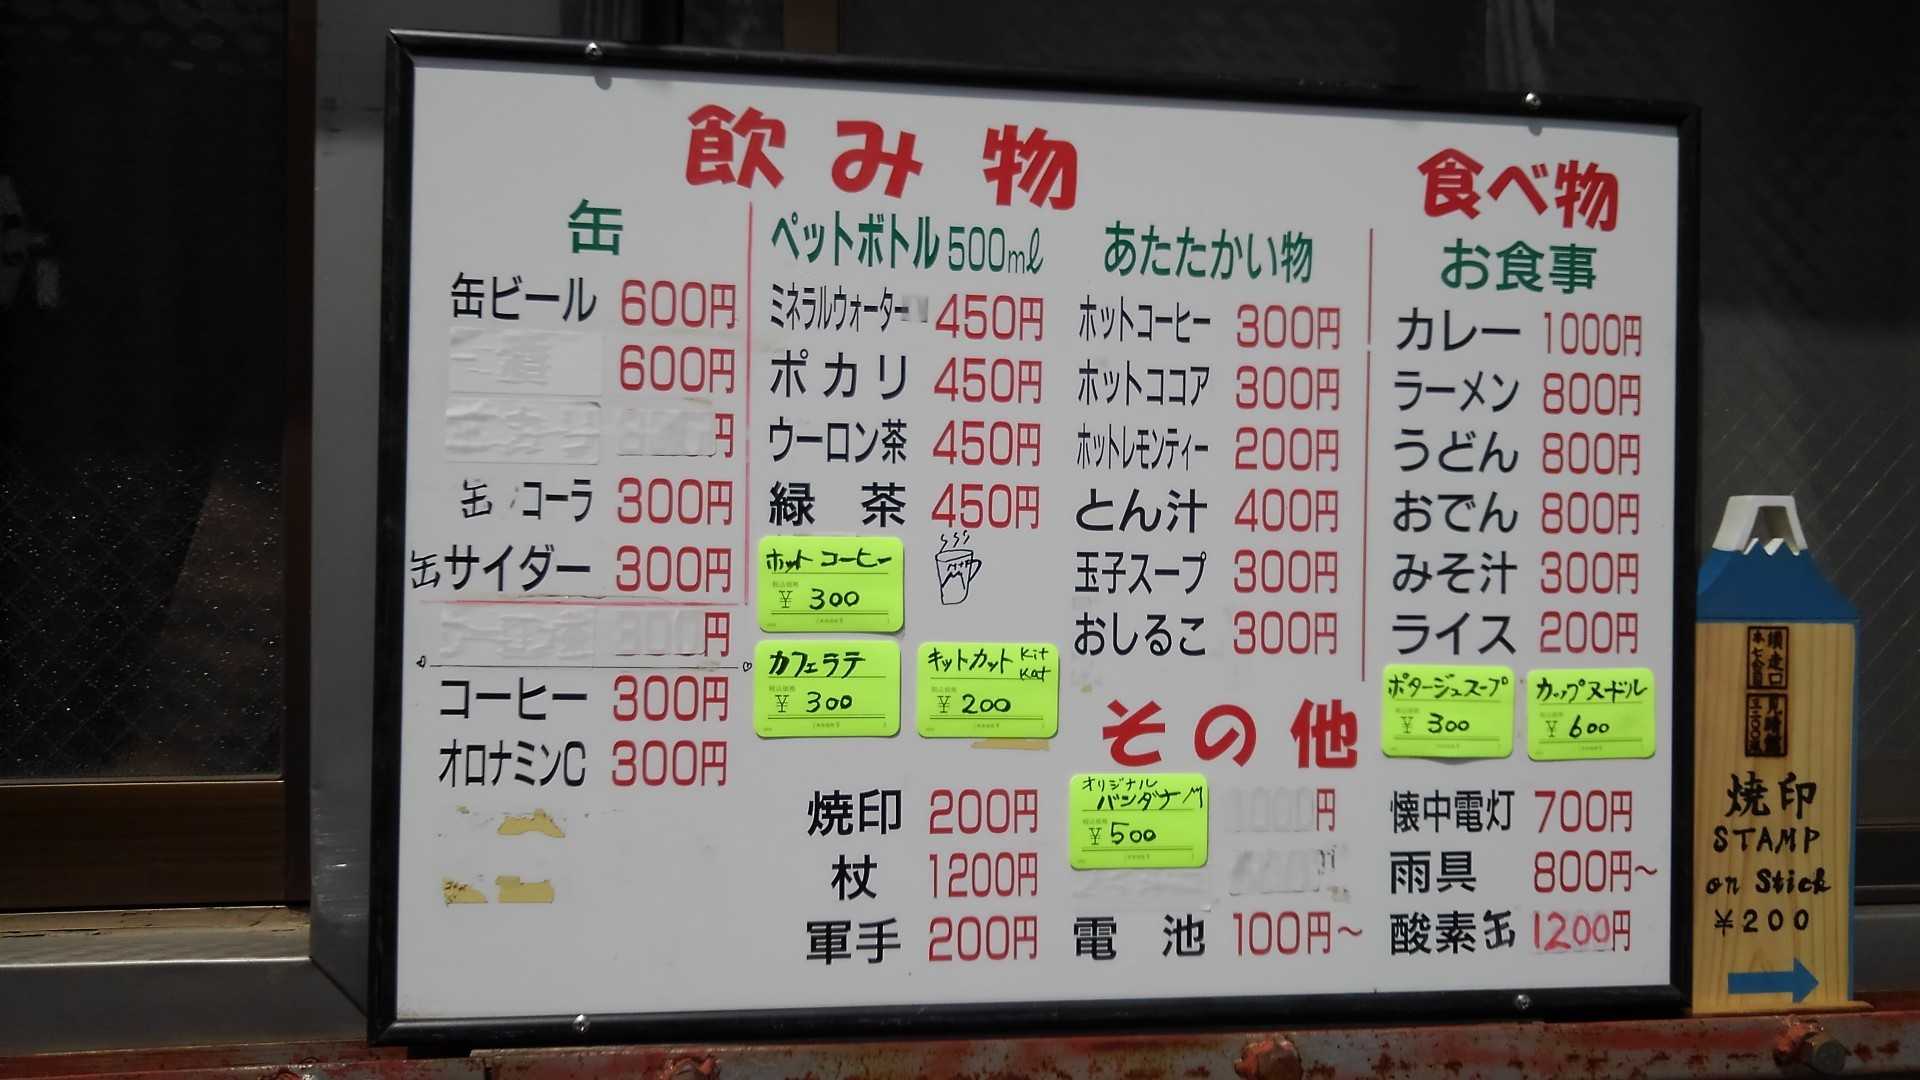 飲み物
缶
缶ビール 600円
600円
円
缶 コーラ 300円
缶サイダー 300円
300円
コーヒー 300円
オロナミンC 300円
ペットボトル 500mℓ
ミネラルウォーター 450円
ポカリ 450円
ウーロン茶 450円
緑 茶 450円
ホット コーヒー
税込価格
¥ 300
カフェラテ
税込価格
¥ 300
キットカット Kit Kat
税込価格
¥ 200
あたたかい物
ホットコーヒー 300円
ホットココア 300円
ホットレモンティー 200円
とん汁 400円
玉子スープ 300円
おしるこ 300円
食べ物
お食事
カレー 1000円
ラーメン 800円
うどん 800円
おでん 800円
みそ汁 300円
ライス 200円
ポタージュスープ
税込価格
¥ 300
カップヌードル
税込価格
¥ 600
その他
焼印 200円
杖 1200円
軍手 200円
オリジナル
バンダナ
税込価格
¥ 500
1000円
電 池 100円～
懐中電灯 700円
雨具 800円～
酸素缶 1200円
須走口
本七合目
見晴館
三二〇〇米
焼印
STAMP
on Stick
¥200